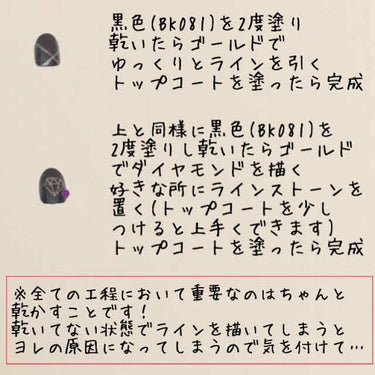 黒色(BK081)を2度塗り
乾いたらゴールドで
ゆっくりとラインを引く
トップコートを塗ったら完成
上と同様に黒色(BK081)を
2度塗りし乾いたらゴールド
でダイヤモンドを描く
好きな所にラインストーンを
置く(トップコートを少し
つけると上手くできます)
トップコートを塗ったら完成
※全ての工程において重要なのはちゃんと
乾かすことです!
乾いてない状態でラインを描いてしまうと
ヨレの原因になってしまうので気を付けて…